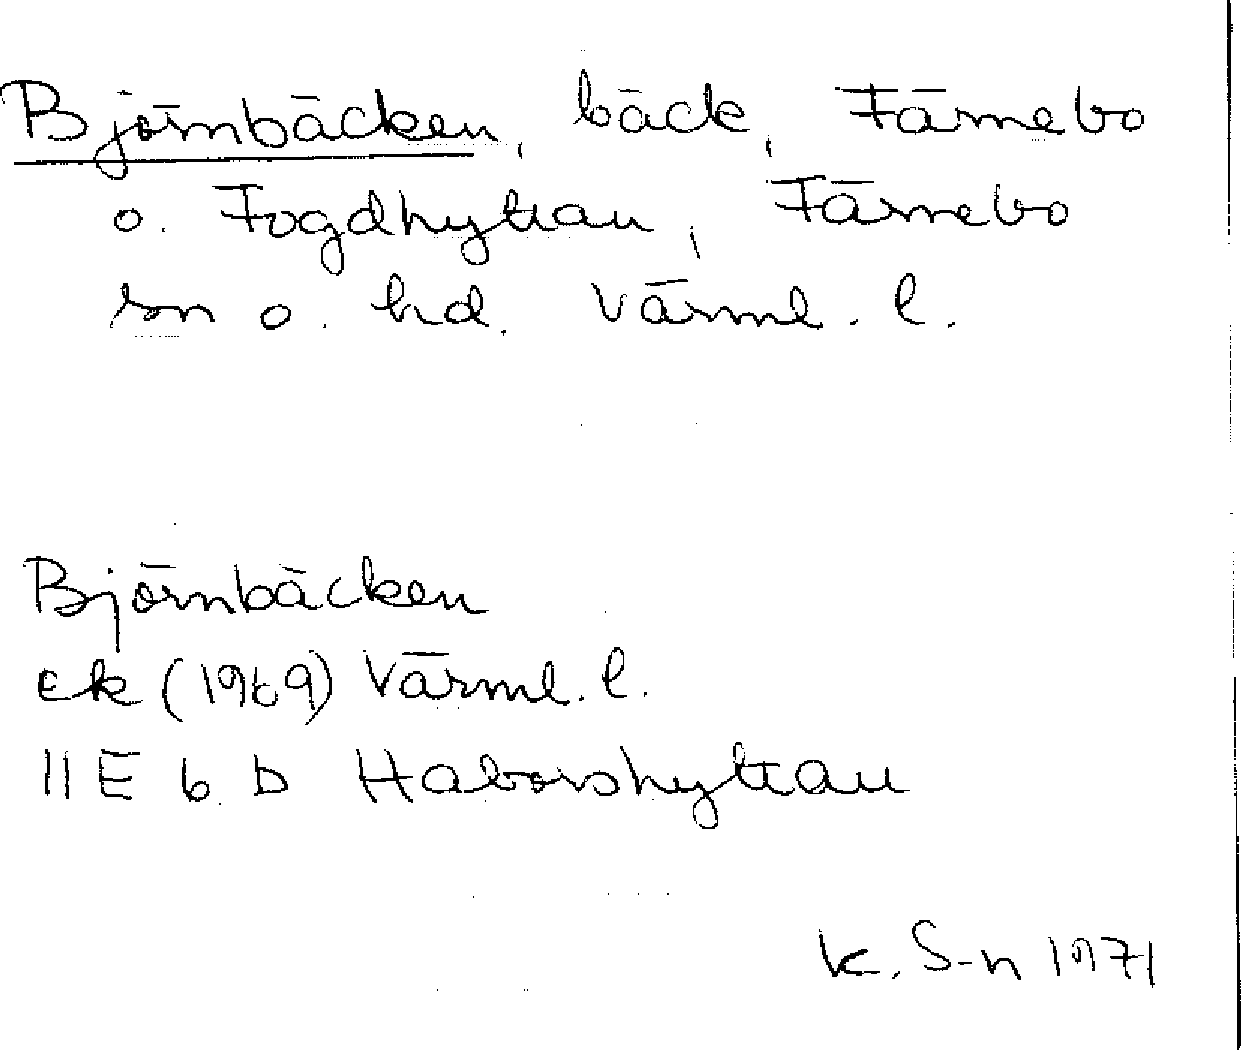 Björnbäcken, bäck, Färnebo
o. Fogdhyttan, Färnebo
sn o. hd. Värml. l.
Björnbäcken
ek (1969) Värml. l.
11 E 6 b Haborshyttan
K. S-n 1971